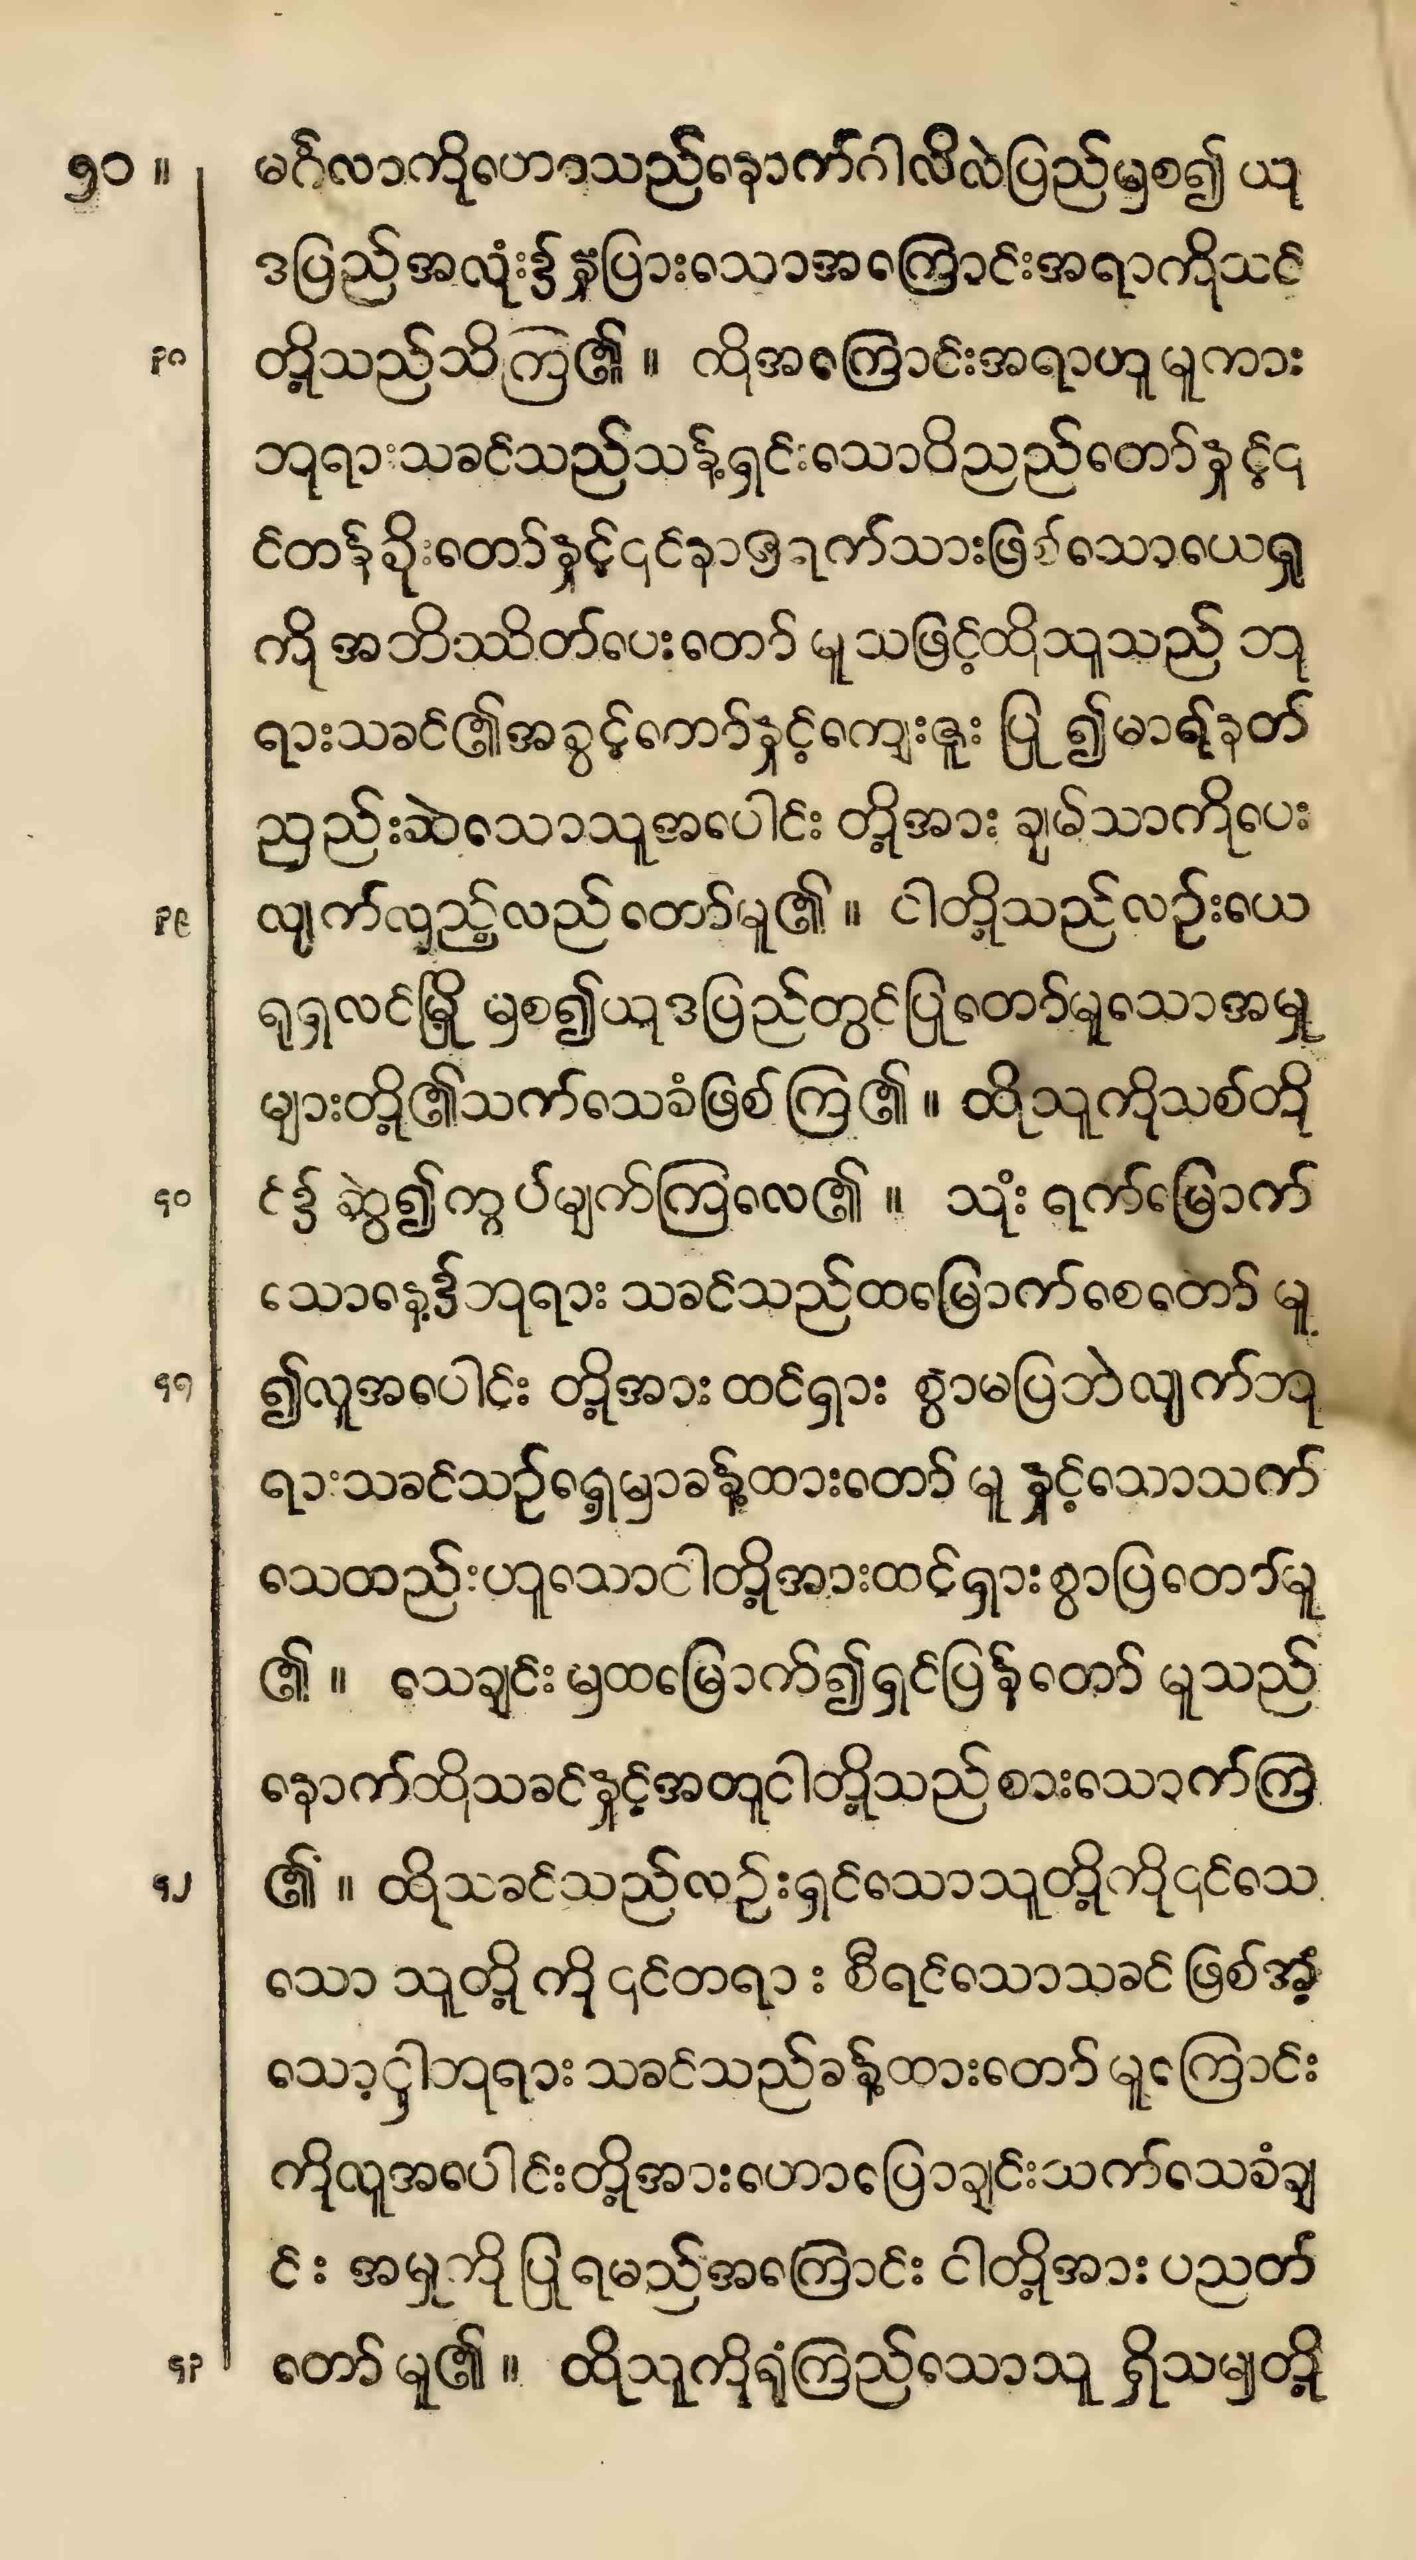 ၅၀ ။ မင်္ဂလာကိုဟောသည်နောက်ဂါလိလဲပြည်မှစ၍ ယု
ဒပြည်အလုံး၌နှံပြားသောအကြောင်းအရာကိုသင်
၃၈ တို့သည်သိကြ၏ ။ ထိုအကြောင်းအရာဟူမူကား
ဘုရားသခင်သည်သန့်ရှင်းသောဝိညည်တော်နှင့်၎
င်တန်ခိုးတော်နှင့်၎င်နာဇရက်သားဖြစ်သောယေရှု
ကို အဘိဿိတ်ပေးတော် မူသဖြင့်ထိုသူသည် ဘု
ရားသခင်၏အခွင့်တော်နှင့်ကျေးဇူး ပြု ၍မာရ်နတ်
ညှည်းဆဲသောသူအပေါင်း တို့အား ချမ်သာကိုပေး
၃၉ လျက်လှည့်လည်တော်မူ၏ ။ ငါတို့သည်လဉ်းယေ
ရုရှလင်မြို့ မှစ၍ယုဒပြည်တွင်ပြုတော်မူသောအမှု
များတို့၏သက်သေခံဖြစ်ကြ၏ ။ ထိုသူကိုသစ်တို
၄၀ င်၌ ဆွဲ၍ကွပ်မျက်ကြလေ၏ ။ သုံး ရက်မြောက်
သောနေ့၌ဘုရား သခင်သည်ထမြောက်စေတော် မူ
၄၁ ၍လူအပေါင်း တို့အားထင်ရှား စွာမပြဘဲလျက်ဘု
ရားသခင်သဉ်ရှေ့မှာခန့်ထားတော် မူ နှင့်သောသက်
သေထည်းဟူသောငါတို့အားထင်ရှားစွာပြတော်မူ
၏ ။ သေချင်းမှထမြောက်၍ရှင်ပြန်တော် မူသည်
နောက်ထိုသခင်နှင့်အတူငါတို့သည်စားသောက်ကြ
၄၂ ၏ ။ ထိုသခင်သည်လဉ်းရှင်သောသူတို့ကို၎င်သေ
သော သူတို့ ကို ၎င်တရား စီရင်သောသခင် ဖြစ်အံ့
သော့ငှါဘုရား သခင်သည်ခန့်ထားတော် မူကြောင်း
ကိုလူအပေါင်းတို့အားဟောပြောချင်းသက်သေခံချ
င်း အမှုကို ပြုရမည်အကြောင်း ငါတို့အား ပညတ်
၄၃ တော် မူ၏ ။ ထိုသူကိုရုံကြည်သောသူ ရှိသမျှတို့